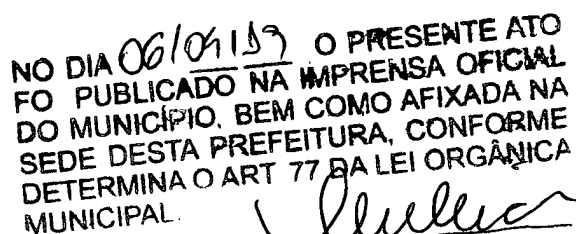 NO DIA 06/04/19 O PRESENTE ATO
FO PUBLICADO NA IMPRENSA OFICIAL
DO MUNICÍPIO, BEM COMO AFIXADA NA
SEDE DESTA PREFEITURA, CONFORME
DETERMINA O ART 77 DA LEI ORGÂNICA
MUNICIPAL.